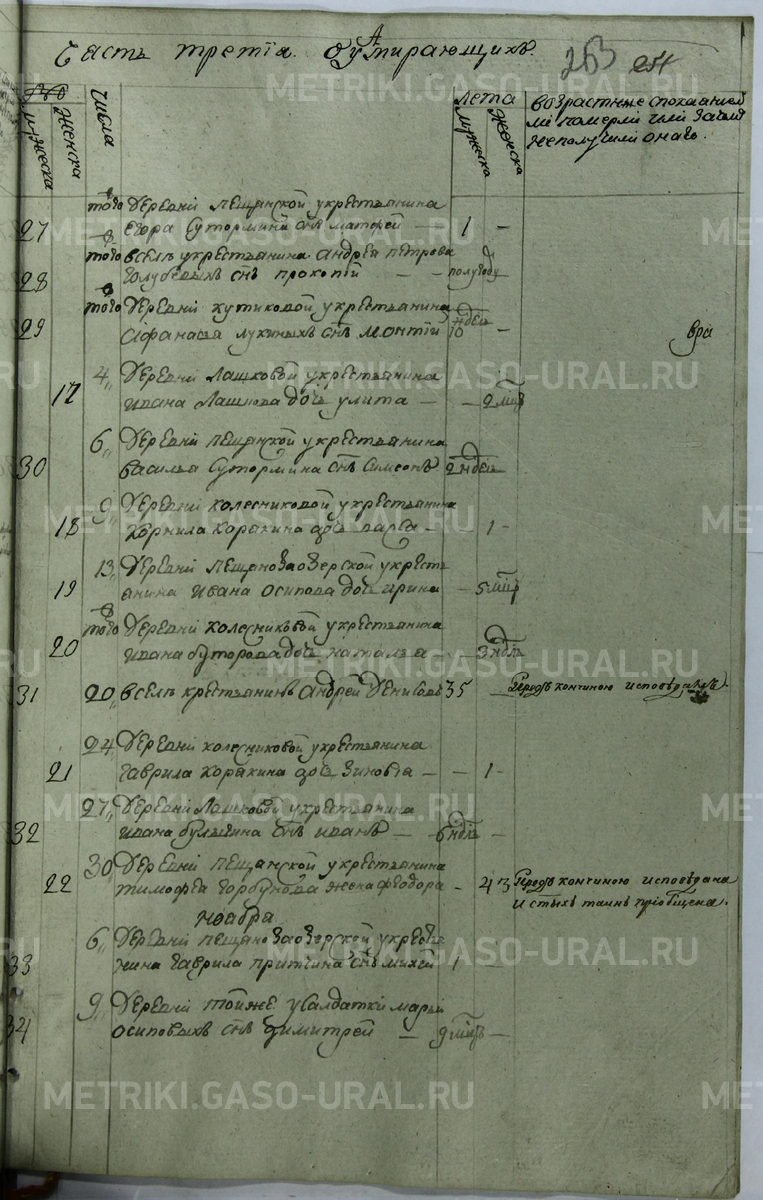 Часть третїа оумирающихъ.
263 254
мужеска женска числа
лета мужеска женска
возрастные спокаанїем
ли померли или зачем
неполучили онагѡ
27 того деревни пещанской укрестьянина
егора Сутормина снъ матфей — 1 —
28 того вселѣ укрестьянина андрея петрова
голубевыхъ снъ прокопїй — полугоду
29 того деревни кутиковой укрестьянина
афанасья лукиныхъ снъ леонтїй 10 ндел —
17 4 деревни лашковой укрестьянина
ивана Лашкова дочь улита — — 2 мцъ
30 6 деревни пещанской укрестьянина
василья Сутормина снъ Симеонъ 2 ндел
18 9 деревни колесниковой укрестьянина
корнила корякина дочь — 1 -
19 13 деревни пещановзаозерской укресть
янина ивана осипова дочь ирина — 5 мцъ
20 того деревни колесниковой укрестьянина
ивана буторова дочь наталья — 3 ндлъ
31 20 вселѣ крестьянинъ андрей денисовъ 35 — Передъ кончиною исповѣданъ.
21 24 деревни колесниковой укрестьянина
гаврила корякина дочь зиновья — — 1 -
32 27 деревни лашковой укрестьянина
ивана снъ иванъ — 6 ндлъ —
22 30 деревни пещанской укрестьянина
тимофея горбунова жена феодора — 43 Передъ кончиною исповѣдана
и стыхъ таинъ прїобщена.
ноабра
33 6 деревни пещановзаозерской укрестья
нина гаврила снъ михей 1 —
34 9 деревни тойже усалдатки марьи
осиповыхъ снъ димитрей — 9 мцъ —
METRIKI.GASO-URAL.RU